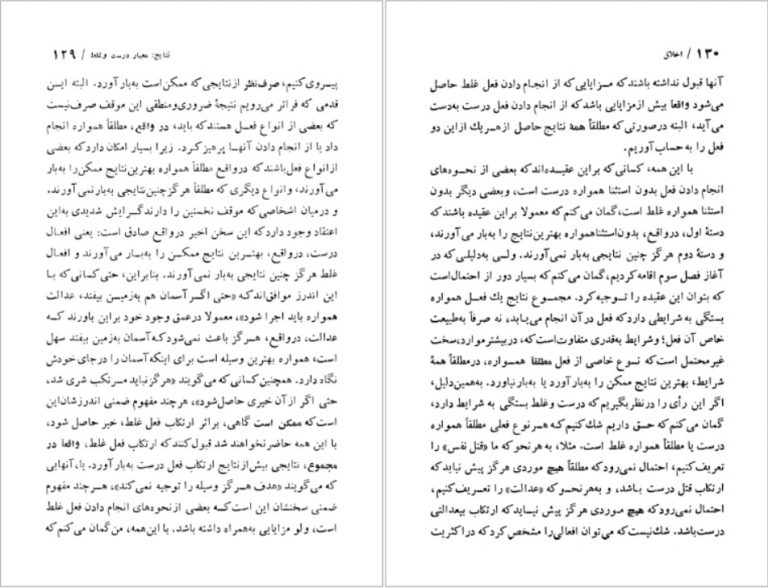 نتایج: معیار درست و غلط / ۱۲۹
پیروی کنیم، صرف‌نظر از نتایجی که ممکن است به‌بار آورد. البته ایــن
قدمی که فراتر می‌رویم نتیجهٔ ضروری‌ومنطقی این موقف صرف‌نیست
که بعضی از انواع فعل هستند که باید، در واقع، مطلقاً همواره انجام
داد یا از انجام دادن آنهــا پرهیز کــرد. زیرا بسیار امکان دارد که بعضی
از انواع فعل باشند که درواقع مطلقاً همواره بهترین نتایج ممکن را به‌بار
می‌آورند، و انواع دیگری که مطلقاً هرگز چنین نتایجی به‌بار نمی‌آورند.
و درمیان اشخاصی که موقف نخستین را دارند گرایش شدیدی به‌این
اعتقاد وجود دارد که این سخن اخیر درواقع صادق است: یعنی افعال
درست، درواقع، بهتــرین نتایج ممکــن را به‌بــار می‌آورند و افعــال
غلط هرگز چنین نتایجی به‌بار نمی‌آورند. بنابراین، حتی کسانی که با
این اندرز موافق‌اند کــه «حتی اگــر آسمان هم به‌زمیــن بیفتد، عدالت
همواره باید اجرا شود»، معمولا درعمق وجود خود براین باورند کــه
عدالت، درواقع، هرگز باعث نمی‌شود که آسمان به‌زمین بیفتد سهل
است، همواره بهترین وسیله است برای اینکه آسمان را درجای خودش
نگاه دارد. همچنین کسانی که می‌گویند «هرگز نباید مــرتکب شری شد،
حتی اگر از آن خیری حاصل شود»، هرچند مفهوم ضمنی اندرزشان این
است که ممکن است گاهی، براثر ارتکاب فعل غلط، خیر حاصل شود،
با این همه حاضر نخواهند شد قبول کنند که ارتکاب فعل غلط، واقعاً در
مجموع، نتایجی بیش از نتایج ارتکاب فعل درست به‌بار آورد. یا، آنهایی
که می‌گویند «هدف هــرگز وسیله را توجیه نمی‌کند»، هــرچند مفهوم
ضمنی سخنشان این است کــه بعضی از نحوه‌های انجام دادن فعل غلط
است، ولو مزایایی به‌همراه داشته باشد. با این‌همه، من گمان می‌کنم که
۱۳۰ / اخلاق
آنها قبول نداشته باشند که مــزایایی که از انجــام دادن فعل غلط حاصل
می‌شود واقعاً بیش از مزایایی باشد که از انجام دادن فعل درست به‌دست
می‌آید، البته درصورتی که مطلقاً همهٔ نتایج حاصل از هــریک از این دو
فعل را به حساب آوریم.
با این همه، کسانی که براین عقیده‌اند که بعضی از نحوه‌های
انجام دادن فعل بدون استثنا همواره درست است، وبعضی دیگر بدون
استثنا همواره غلط است، گمان می‌کنم که معمولا براین عقیده باشند که
دستهٔ اول، درواقع، بدون‌استثنا همواره بهترین نتایج را به‌بار می‌آورند،
و دستهٔ دوم هرگز چنین نتایجی به‌بار نمی‌آورند. ولــی به‌دلیلی که در
آغاز فصل سوم اقامه کردیم، گمان می‌کنم که بسیار دور از احتمال است
که بتوان این عقیده را توجیه کرد. مجمــوع نتایج یك فعــل همواره
بستگی به شرایطی دارد که فعل در آن انجام می‌یابد، نه صرفاً به‌طبیعت
خاص آن فعل؛ وشرایط به‌قدری متفاوت است که، دربیشتر موارد، سخت
غیرمحتمل است که نــوع خاصی از فعل مطلقا همــواره، درمطلقاً همهٔ
شرایط، بهترین نتایج ممکن را به‌بار آورد یا به‌بار نیاورد. به‌همین‌دلیل،
اگر این رأی را درنظر بگیریم که درست وغلط بستگی به شرایط دارد،
گمان می‌کنم که حق داریم شك کنیم کــه هــر نوع فعلی مطلقاً همواره
درست یا مطلقاً همواره غلط است. مثلا، به هر نحو که ما «قتل نفس» را
تعریف کنیم، احتمال نمی‌رود که مطلقاً هیچ موردی هرگز پیش نیاید که
ارتکاب قتل درست بــاشد، و به‌هر نحــو که «عدالت» را تعریف کنیم،
احتمال نمی‌رود که هیچ موردی هرگز پیش نیــاید که ارتکاب بی‌عدالتی
درست باشد. شك نیست که می‌توان افعالی را مشخص کرد که دراکثریت